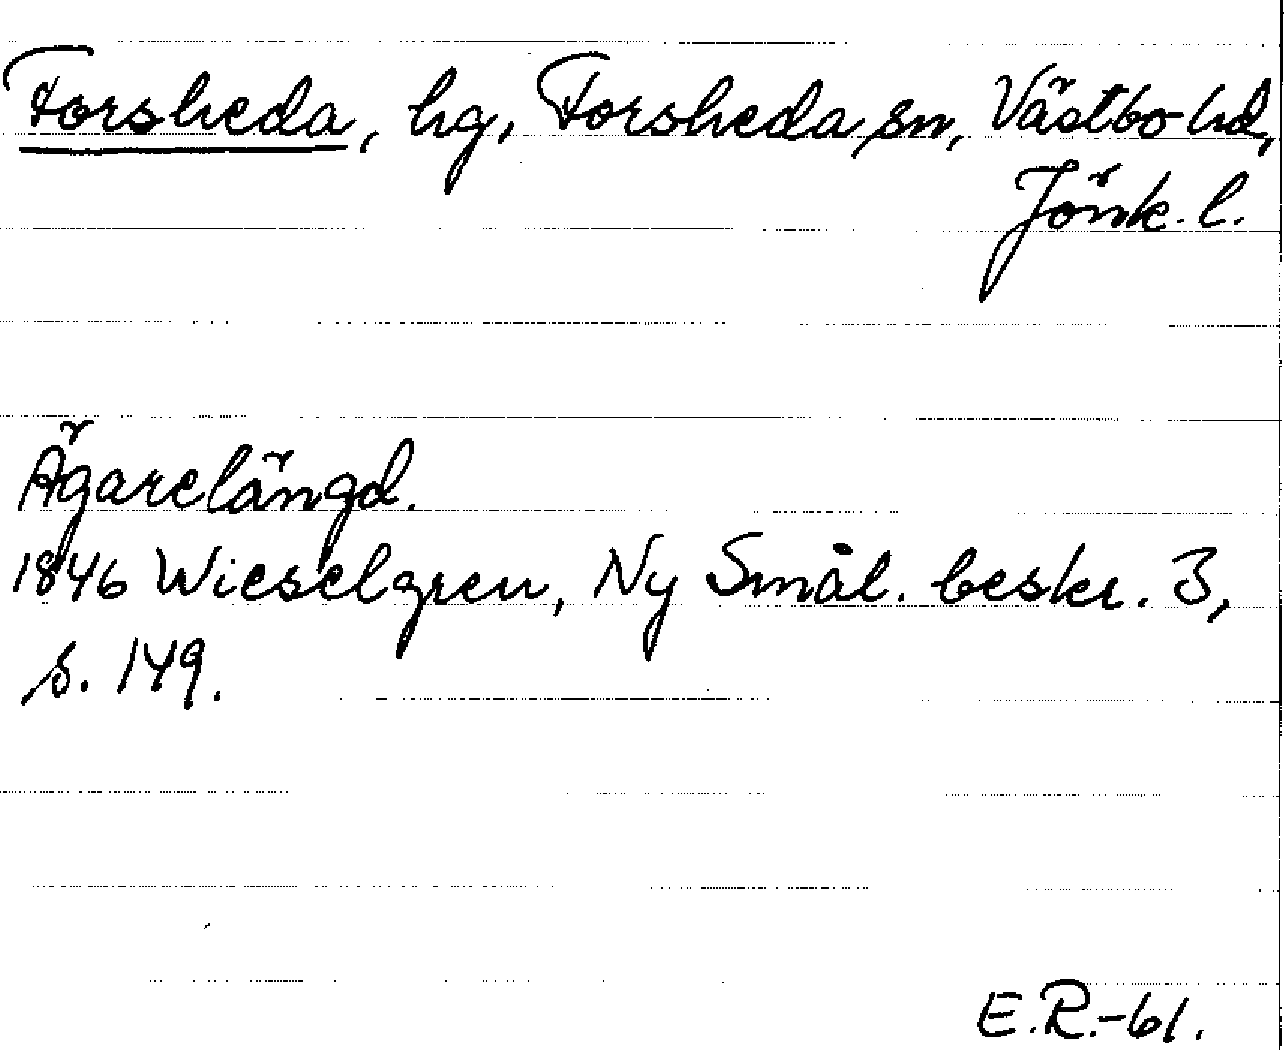 Forsheda, hg, Forsheda sn, Västbo hd,
Jönk. l.
Ägarelängd.
1846 Wieselgren, Ny Smål. beskr. 3,
s. 149.
E.R.-61.